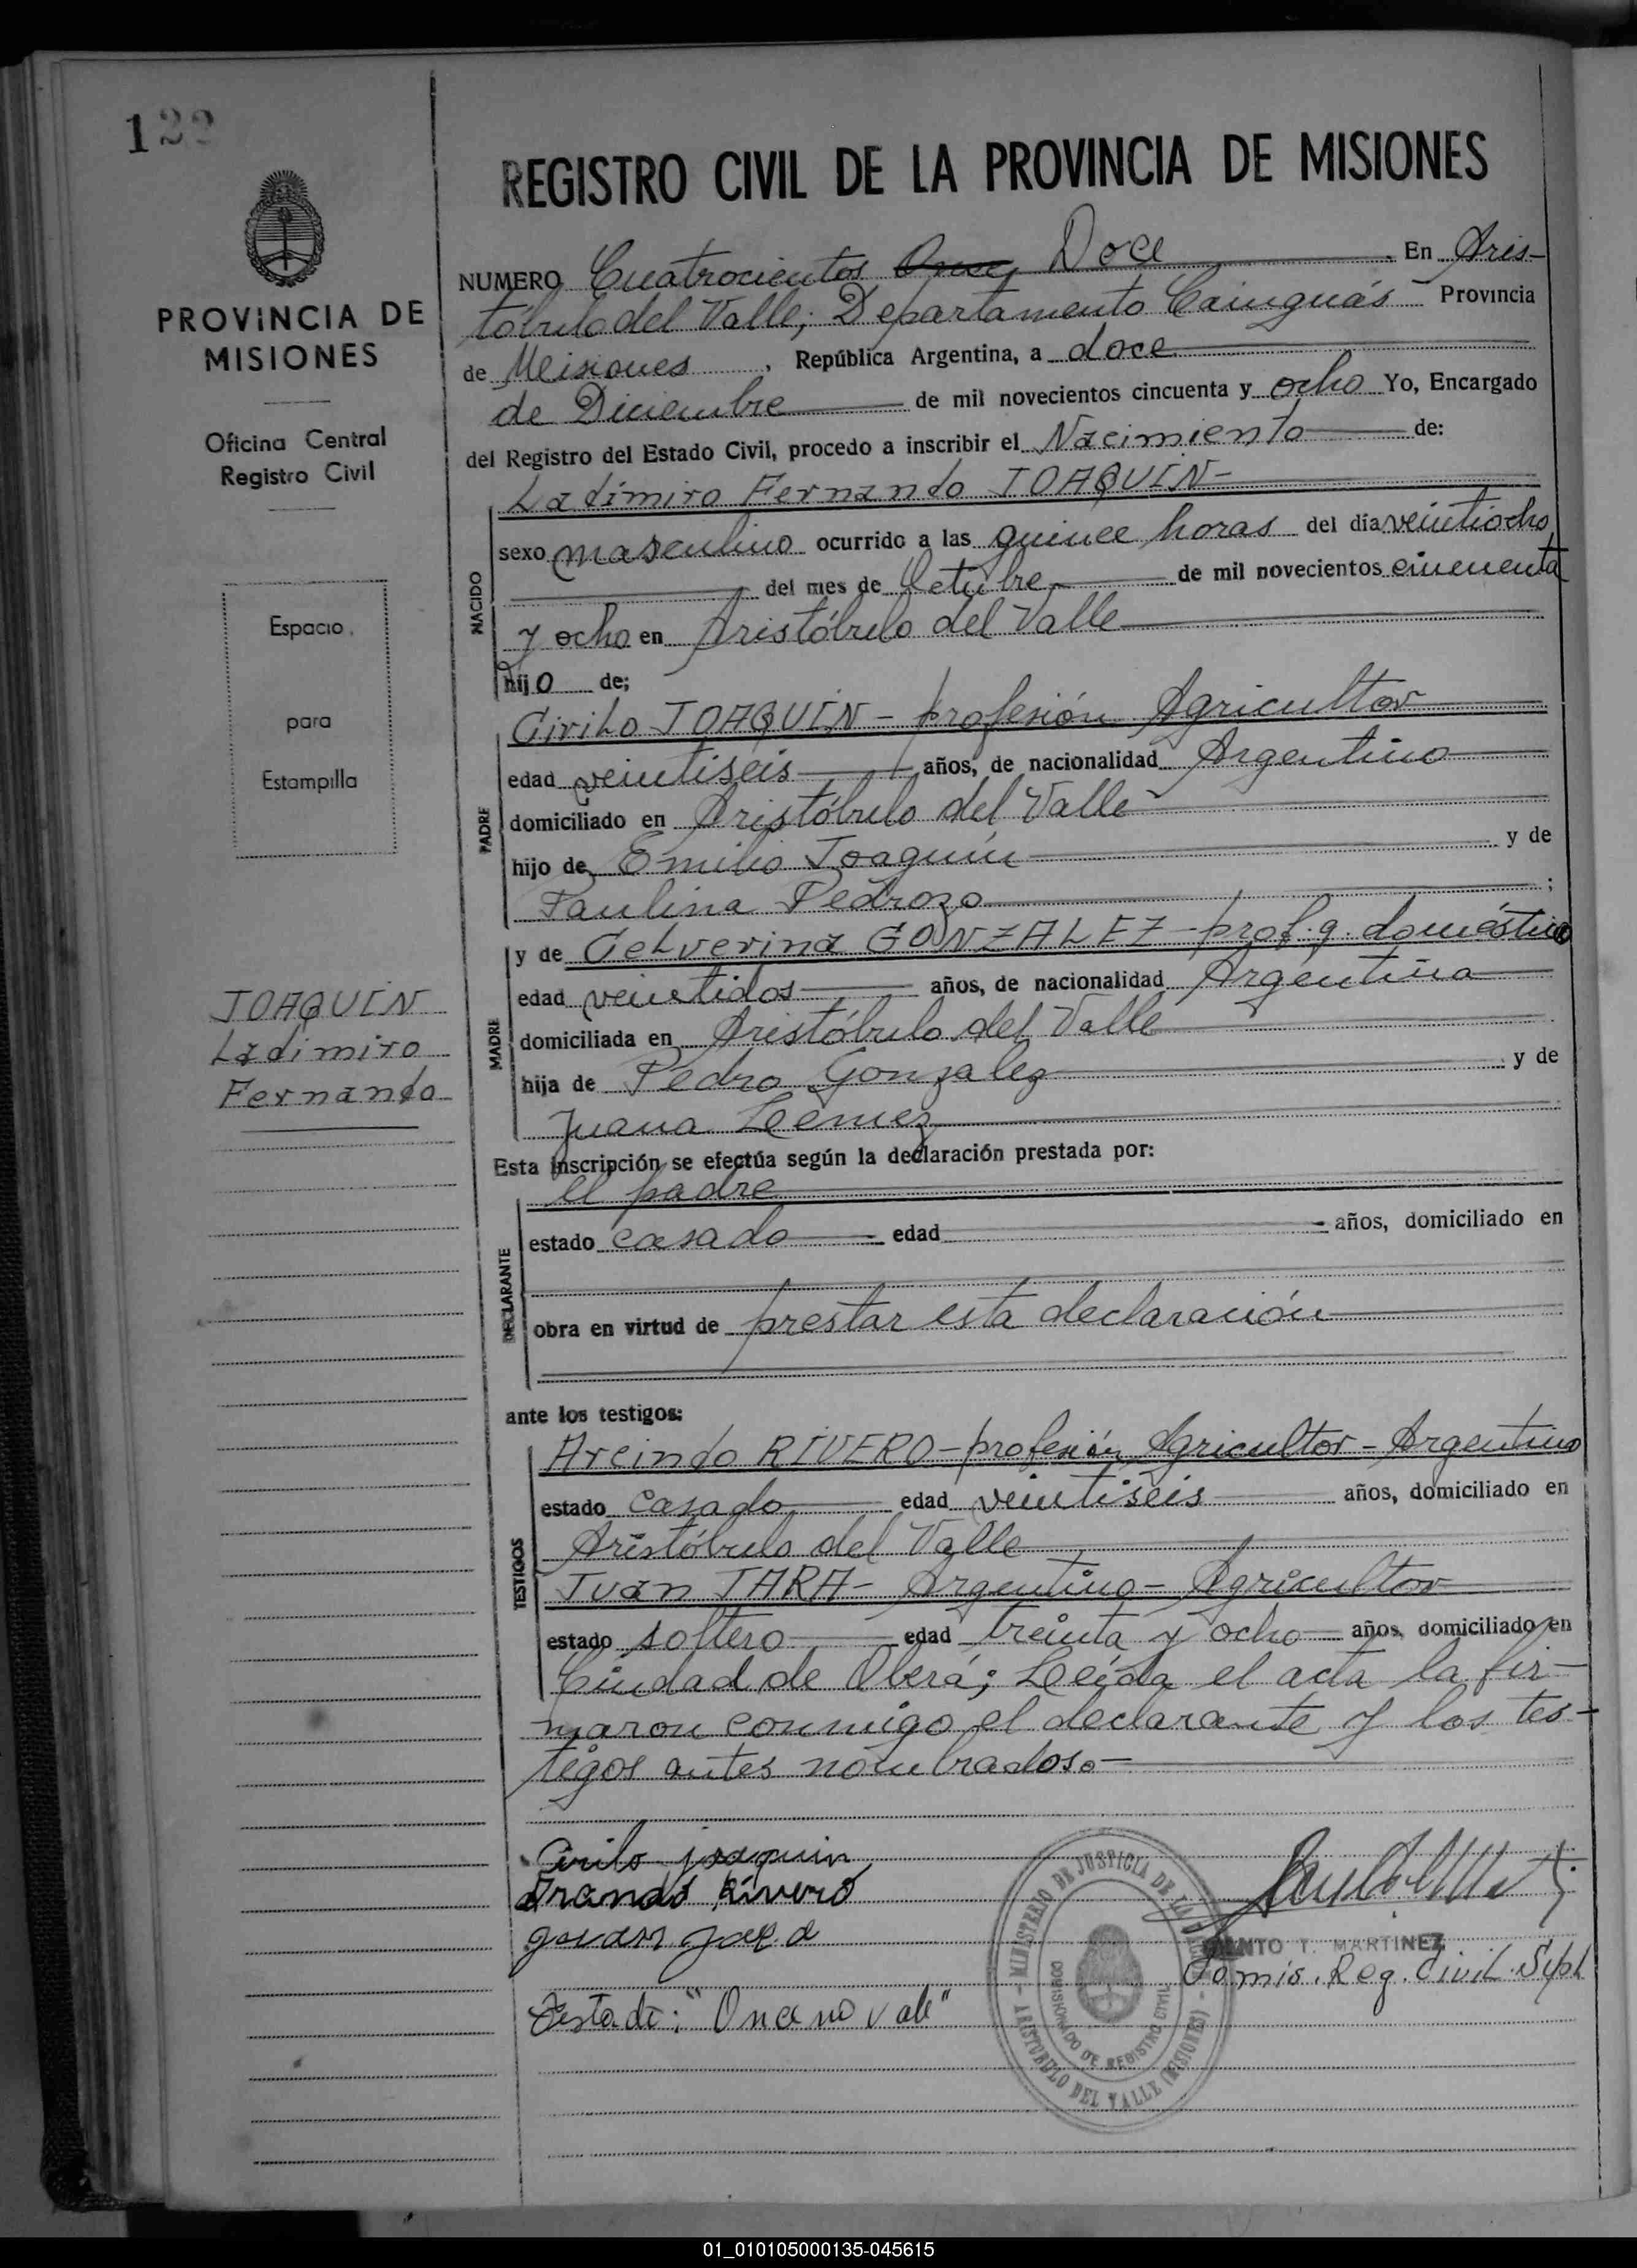 122
REGISTRO CIVIL DE LA PROVINCIA DE MISIONES
PROVINCIA DE
MISIONES
Oficina Central
Registro Civil
Espacio
para
Estampilla
JOAQUIN
Ladimiro
Fernando
NUMERO Cuatrocientos Once Doce. En Aris-
tóbulo del Valle, Departamento Cainguás Provincia
de Misiones, República Argentina, a doce
de Diciembre de mil novecientos cincuenta y ocho Yo, Encargado
del Registro del Estado Civil, procedo a inscribir el Nacimiento de:
NACIDO
Ladimiro Fernando JOAQUIN-
sexo masculino ocurrido a las quince horas del día veintiocho
del mes de Octubre de mil novecientos cincuenta
y ocho en Aristóbulo del Valle
hijo de;
PADRE
Cirilo JOAQUIN - profesión Agricultor
edad veintiseis años, de nacionalidad Argentino
domiciliado en Aristóbulo del Valle
hijo de Emilio Joaquín y de
Paulina Pedrozo;
MADRE
y de Celverina GONZALEZ - prof. q. doméstico
edad veintidos años, de nacionalidad Argentina
domiciliada en Aristóbulo del Valle
hija de Pedro Gonzalez y de
Juana
Esta inscripción se efectúa según la declaración prestada por:
DECLARANTE
el padre
estado casado edad años, domiciliado en
obra en virtud de prestar esta declaración
ante los testigos:
TESTIGOS
Arcindo RIVERO - profesión Agricultor - Argentino
estado casado edad veintiseis años, domiciliado en
Aristóbulo del Valle
Juan JARA - Argentino - Agricultor
estado soltero edad treinta y ocho años, domiciliado en
Ciudad de Oberá; Leída el acta la fir-
maron conmigo el declarante y los tes-
tigos antes nombrados.-
Cirilo joaquin
Rivero
Jara
SANTO T. MARTINEZ
Comis. Reg. Civil Supl
Testado: "Once no vale"
MINISTERIO DE JUSTICIA DE LA
COMISIONADO DE REGISTRO CIVIL
ARISTOBULO DEL VALLE (MISIONES)
01_010105000135-045615